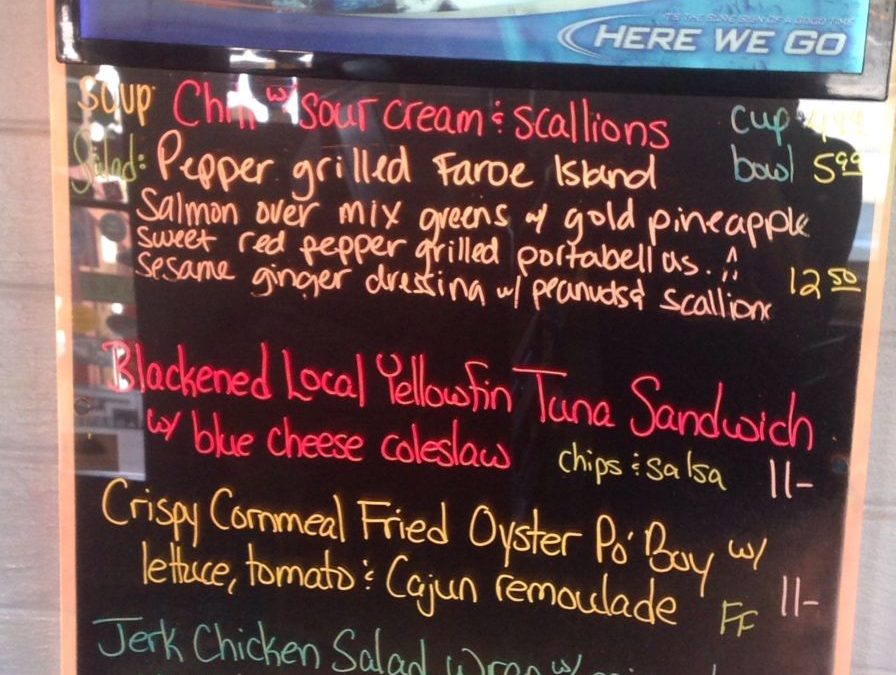 IT'S THE SURE SIGN OF A GOOD TIME
HERE WE GO
Soup Chili w/ sour cream & scallions cup 4.99
Salad: Pepper grilled Faroe Island bowl 5.99
Salmon over mix greens w/ gold pineapple
sweet red pepper grilled portabellas. &
sesame ginger dressing w/ peanuts & scallions 12.50
Blackened Local Yellowfin Tuna Sandwich
w/ blue cheese coleslaw chips & salsa 11-
Crispy Cornmeal Fried Oyster Po' Boy w/
lettuce, tomato & Cajun remoulade FF 11-
Jerk Chicken Salad Wrap w/